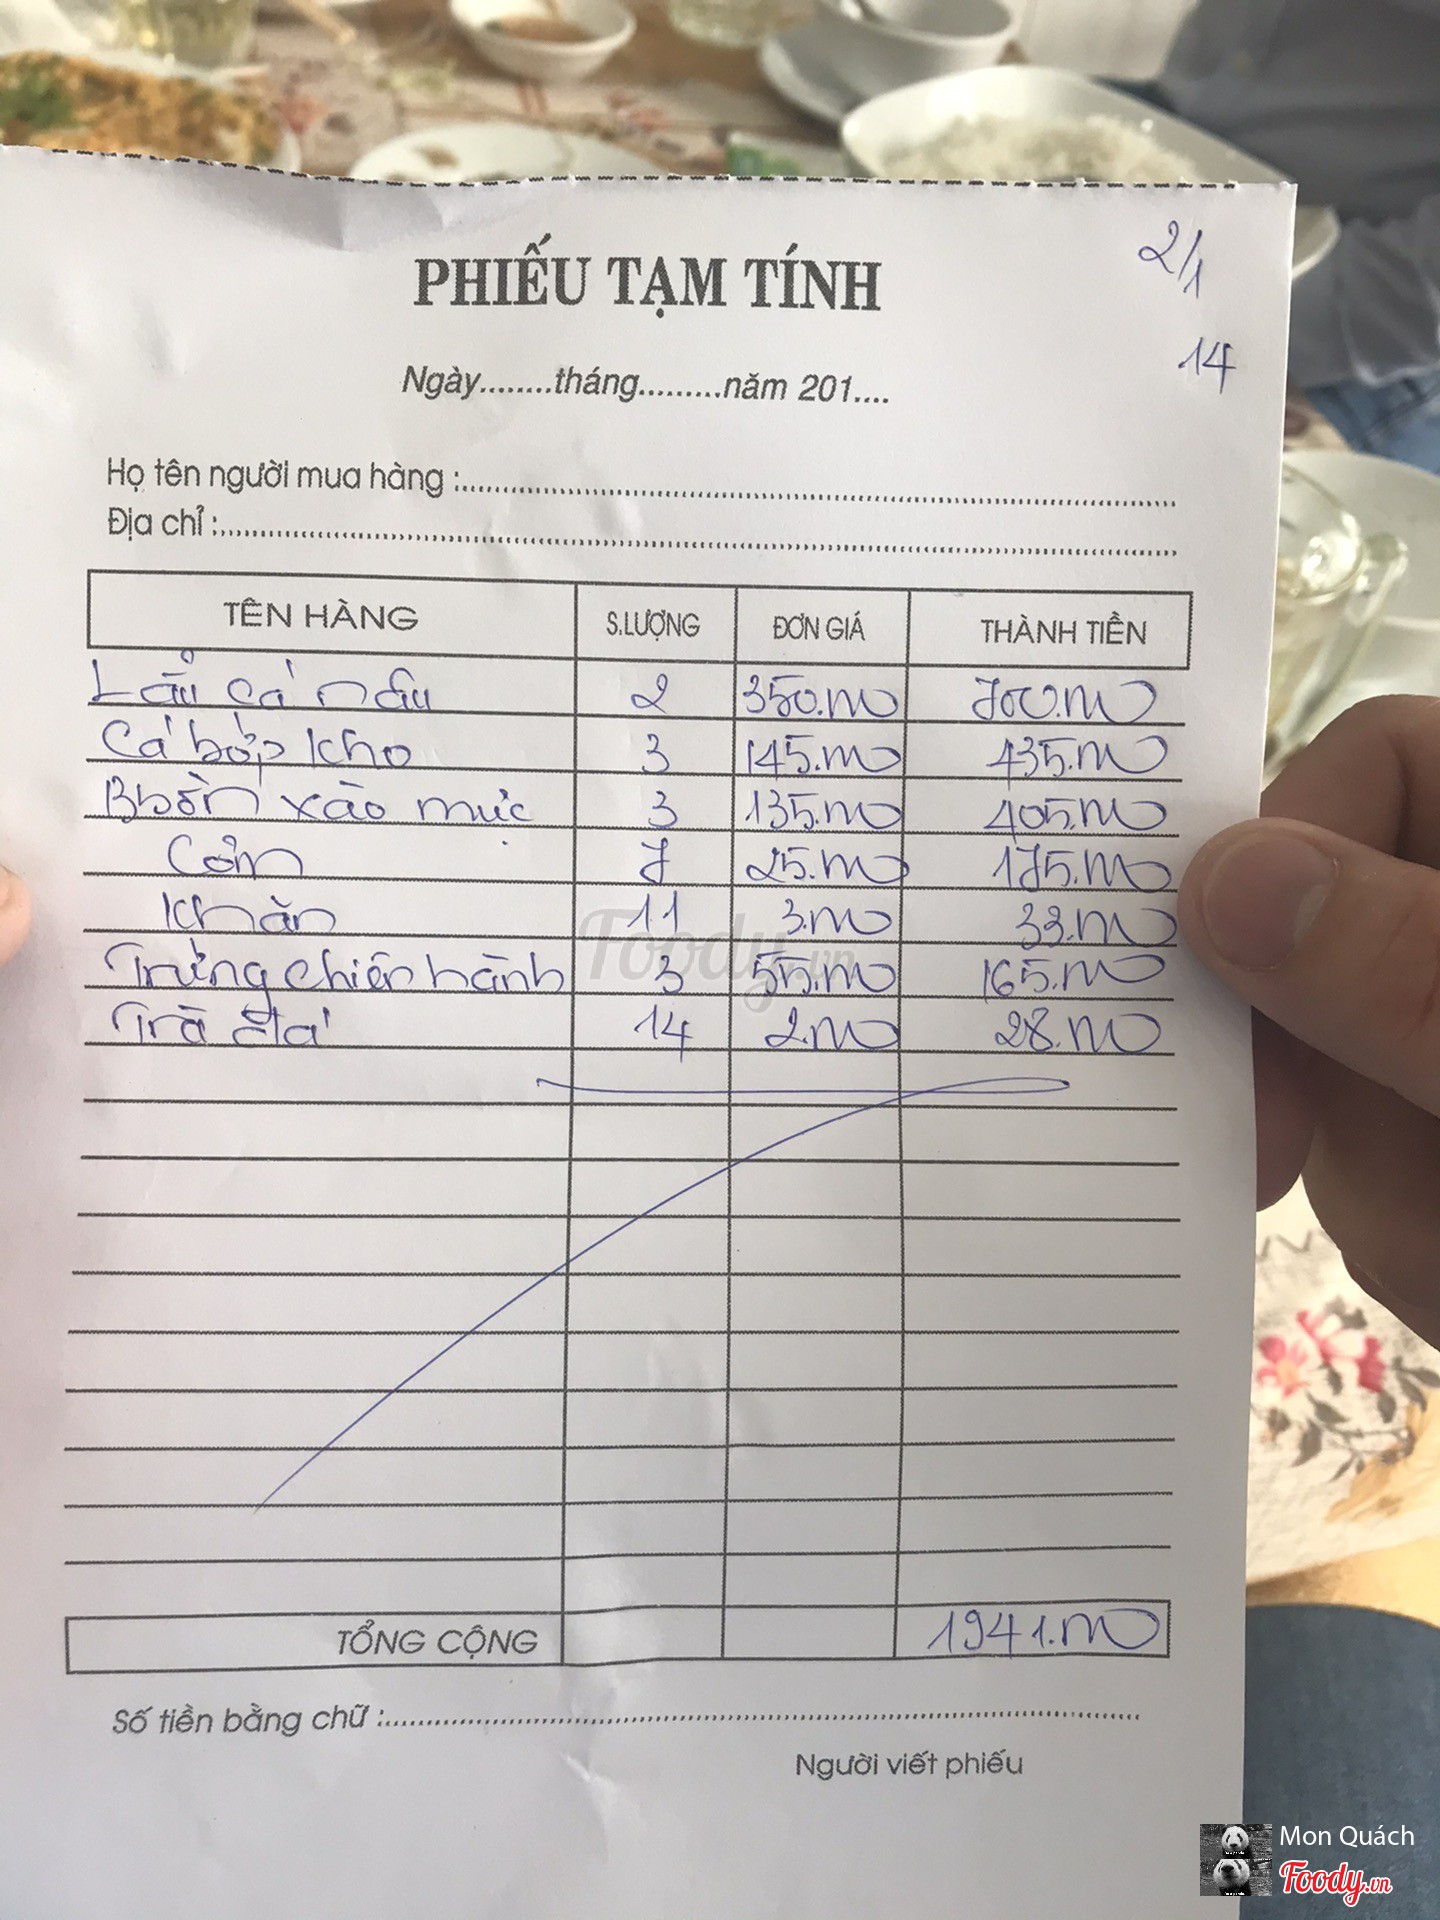 2/1
PHIẾU TẠM TÍNH
14
Ngày........tháng.........năm 201....
Họ tên người mua hàng :
Địa chỉ :
TÊN HÀNG S.LƯỢNG ĐƠN GIÁ THÀNH TIỀN
Lẩu cá nấu 2 350.000 700.000
Cá bớp kho 3 145.000 435.000
xào mực 3 135.000 405.000
Cơm 7 25.000 175.000
Khăn 11 3.000 33.000
Trứng chiên hành 3 55.000 165.000
Trà đá 14 2.000 28.000
Foody.vn
TỔNG CỘNG 1941.000
Số tiền bằng chữ :
Người viết phiếu
Mon Quách
Foody.vn